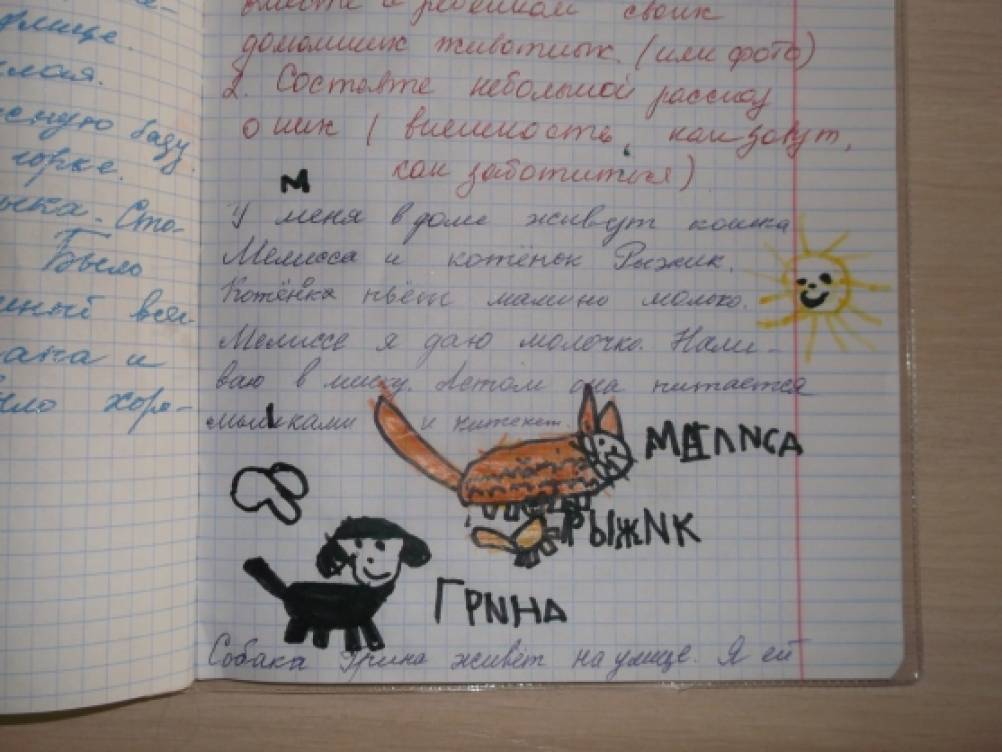 -
флище.
сную базу
горке.
ыка. Сто-
Было
ана и
ло хоро-
вместе с ребёнком своих
домашних животных. (или фото)
2. Составте небольшой рассказ
о них ( внешность, как зовут,
как заботиться)
М
У меня в доме живут кошка
Мелисса и котёнок Рыжик.
Котёнка пьёт мамино молоко.
Мелиссе я даю молочко. Нали-
ваю в миску. Летом она питается
мышками и
МЕЛИСА
РЫЖИК
ГРИНА
Собака Грина живёт на улице. Я ей